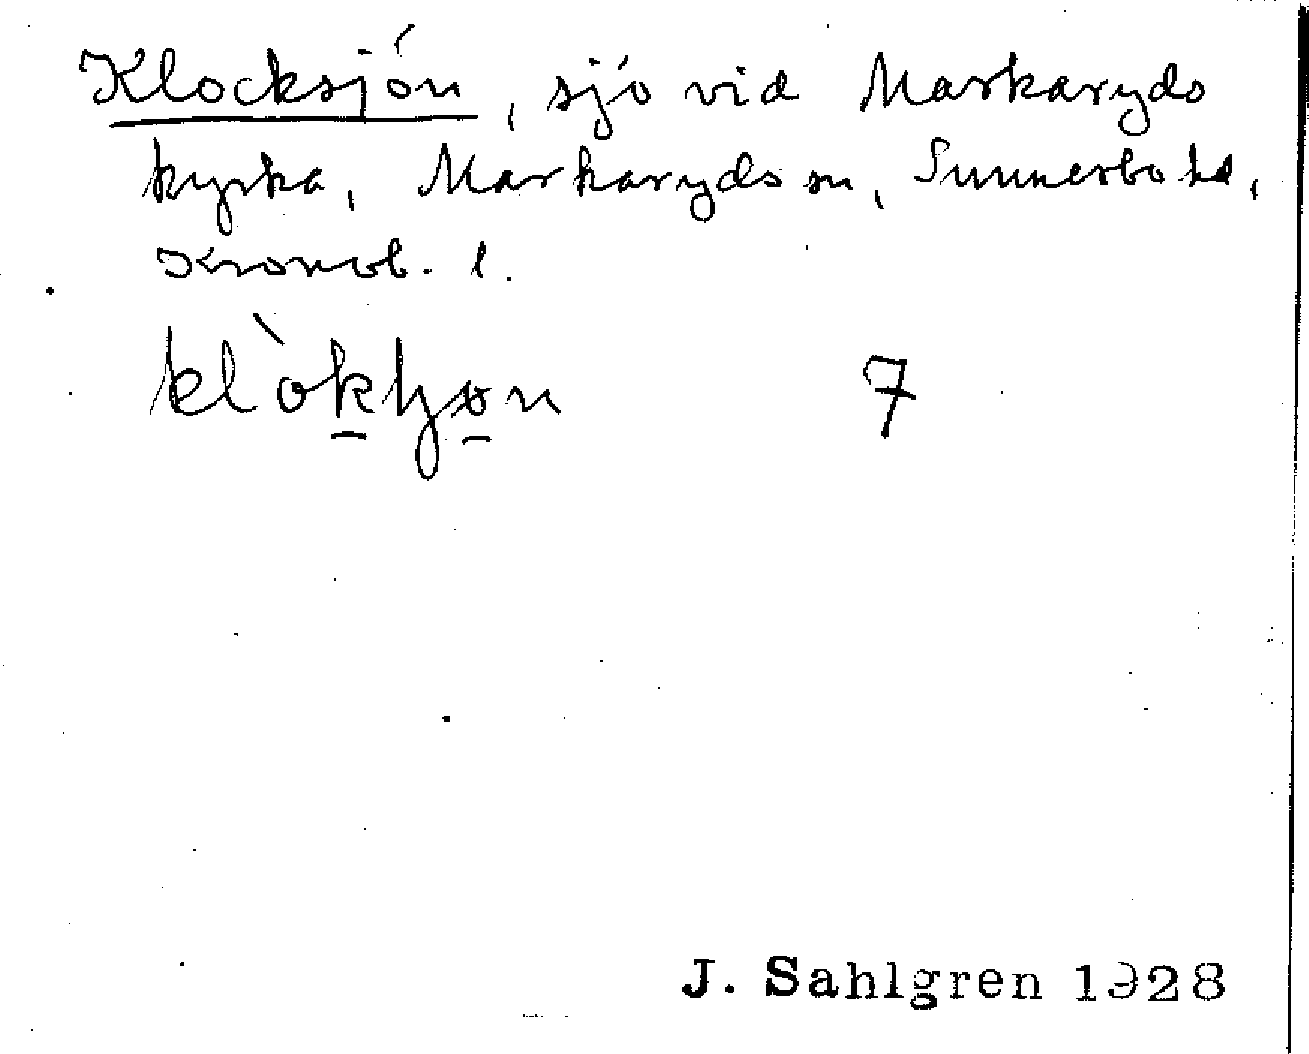 Klocksjön, sjö vid Markaryds
kyrka, Markaryds sn, Sunnerbo hd,
Kronob. l.
klòkhjøn 7
J. Sahlgren 1928